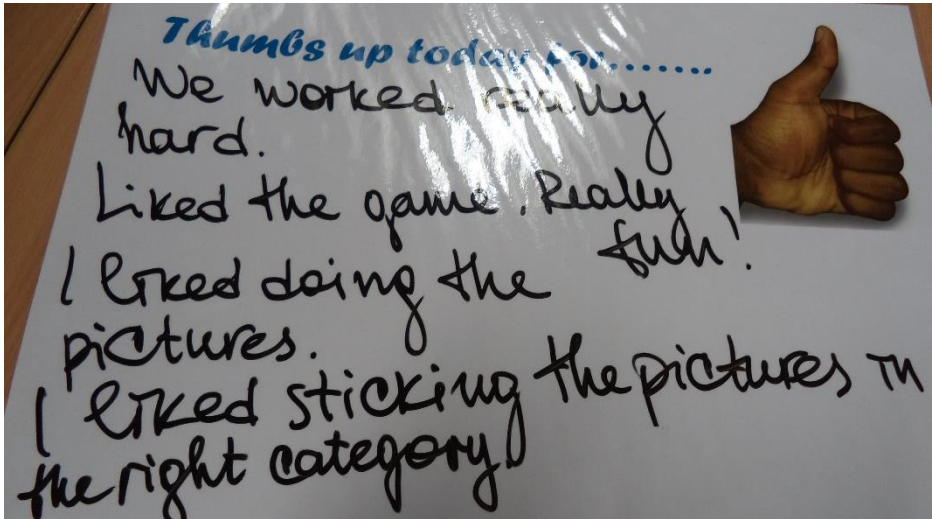 Thumbs up today for.......
We worked really
hard.
Liked the game. Really
fun!
I liked doing the
pictures.
I liked sticking the pictures in
the right category.